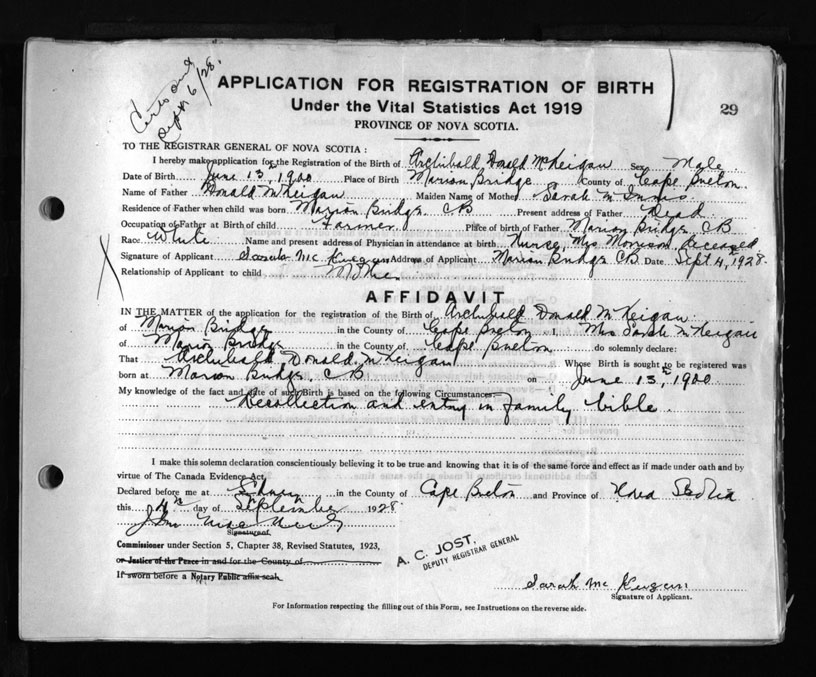 Sept 6/28.
APPLICATION FOR REGISTRATION OF BIRTH
Under the Vital Statistics Act 1919
PROVINCE OF NOVA SCOTIA.
29
TO THE REGISTRAR GENERAL OF NOVA SCOTIA :
I hereby make application for the Registration of the Birth of Archibald Donald McKeigan Sex Male
Date of Birth June 13, 1900 Place of Birth Marion Bridge County of Cape Breton.
Name of Father Donald McKeigan Maiden Name of Mother Sarah McInnis
Residence of Father when child was born Marion Bridge CB Present address of Father Dead
Occupation of Father at Birth of child Farmer Place of birth of Father Marion Bridge, CB
Race White Name and present address of Physician in attendance at birth Nurse, Mrs Morrison, deceased
Signature of Applicant Sarah McKeigan Address of Applicant Marion Bridge CB Date Sept 4th, 1928.
Relationship of Applicant to child Mother
AFFIDAVIT
IN THE MATTER of the application for the registration of the Birth of Archibald Donald McKeigan.
of Marion Bridge in the County of Cape Breton I, Mrs Sarah McKeigan
of Marion Bridge in the County of Cape Breton do solemnly declare:
That Archibald Donald McKeigan Whose Birth is sought to be registered was
born at Marion Bridge, CB on June 13, 1900.
My knowledge of the fact and date of such Birth is based on the following Circumstances:
Recollection and entry in family bible.
I make this solemn declaration conscientiously believing it to be true and knowing that it is of the same force and effect as if made under oath and by
virtue of The Canada Evidence Act.
Declared before me at Sydney in the County of Cape Breton and Province of Nova Scotia
this 4th day of September 1928
Signature of
Commissioner under Section 5, Chapter 38, Revised Statutes, 1923,
or Justice of the Peace in and for the County of
If sworn before a Notary Public affix seal.
A. C. JOST,
DEPUTY REGISTRAR GENERAL
Sarah McKeigan
Signature of Applicant.
For Information respecting the filling out of this Form, see Instructions on the reverse side.